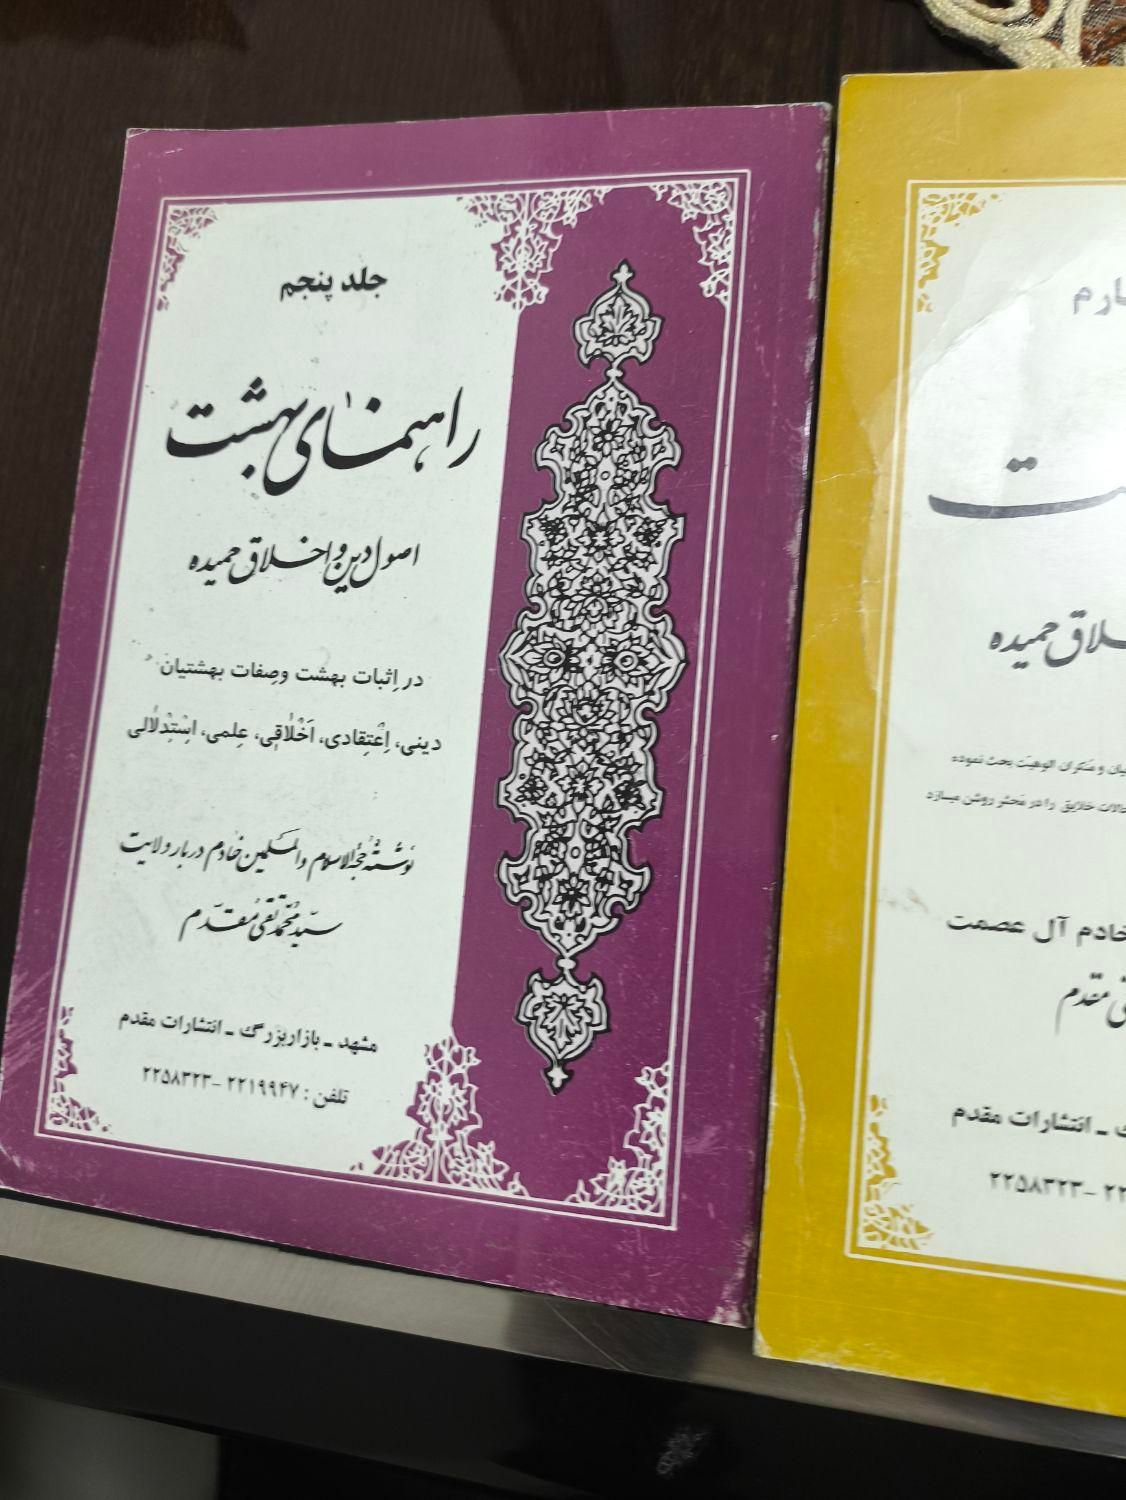 جلد پنجم
راهنمای بهشت
اصول دین و اخلاق حمیده
در اِثبات بهشت وصِفات بهشتیان
دینی، اِعْتِقادی، اَخْلاٰقی، عِلمی، اسْتِدْلاٰلی
نوشتهٔ حجةالاسلام والمسلمین خادم دربار ولایت
سیّد محمّد تقی مُقدّم
مشهد ـ بازاربزرگ ـ انتشارات مقدم
تلفن : ۲۲۱۹۹۴۷ -۲۲۵۸۳۲۳
ارم
ت
لاق حمیده
یان و منکران الوهیت بحث نموده
حالات خلایق را در محشر روشن میسازد
خادم آل عصمت
قی مقدم
ک ـ انتشارات مقدم
۲۲ -۲۲۵۸۳۲۳